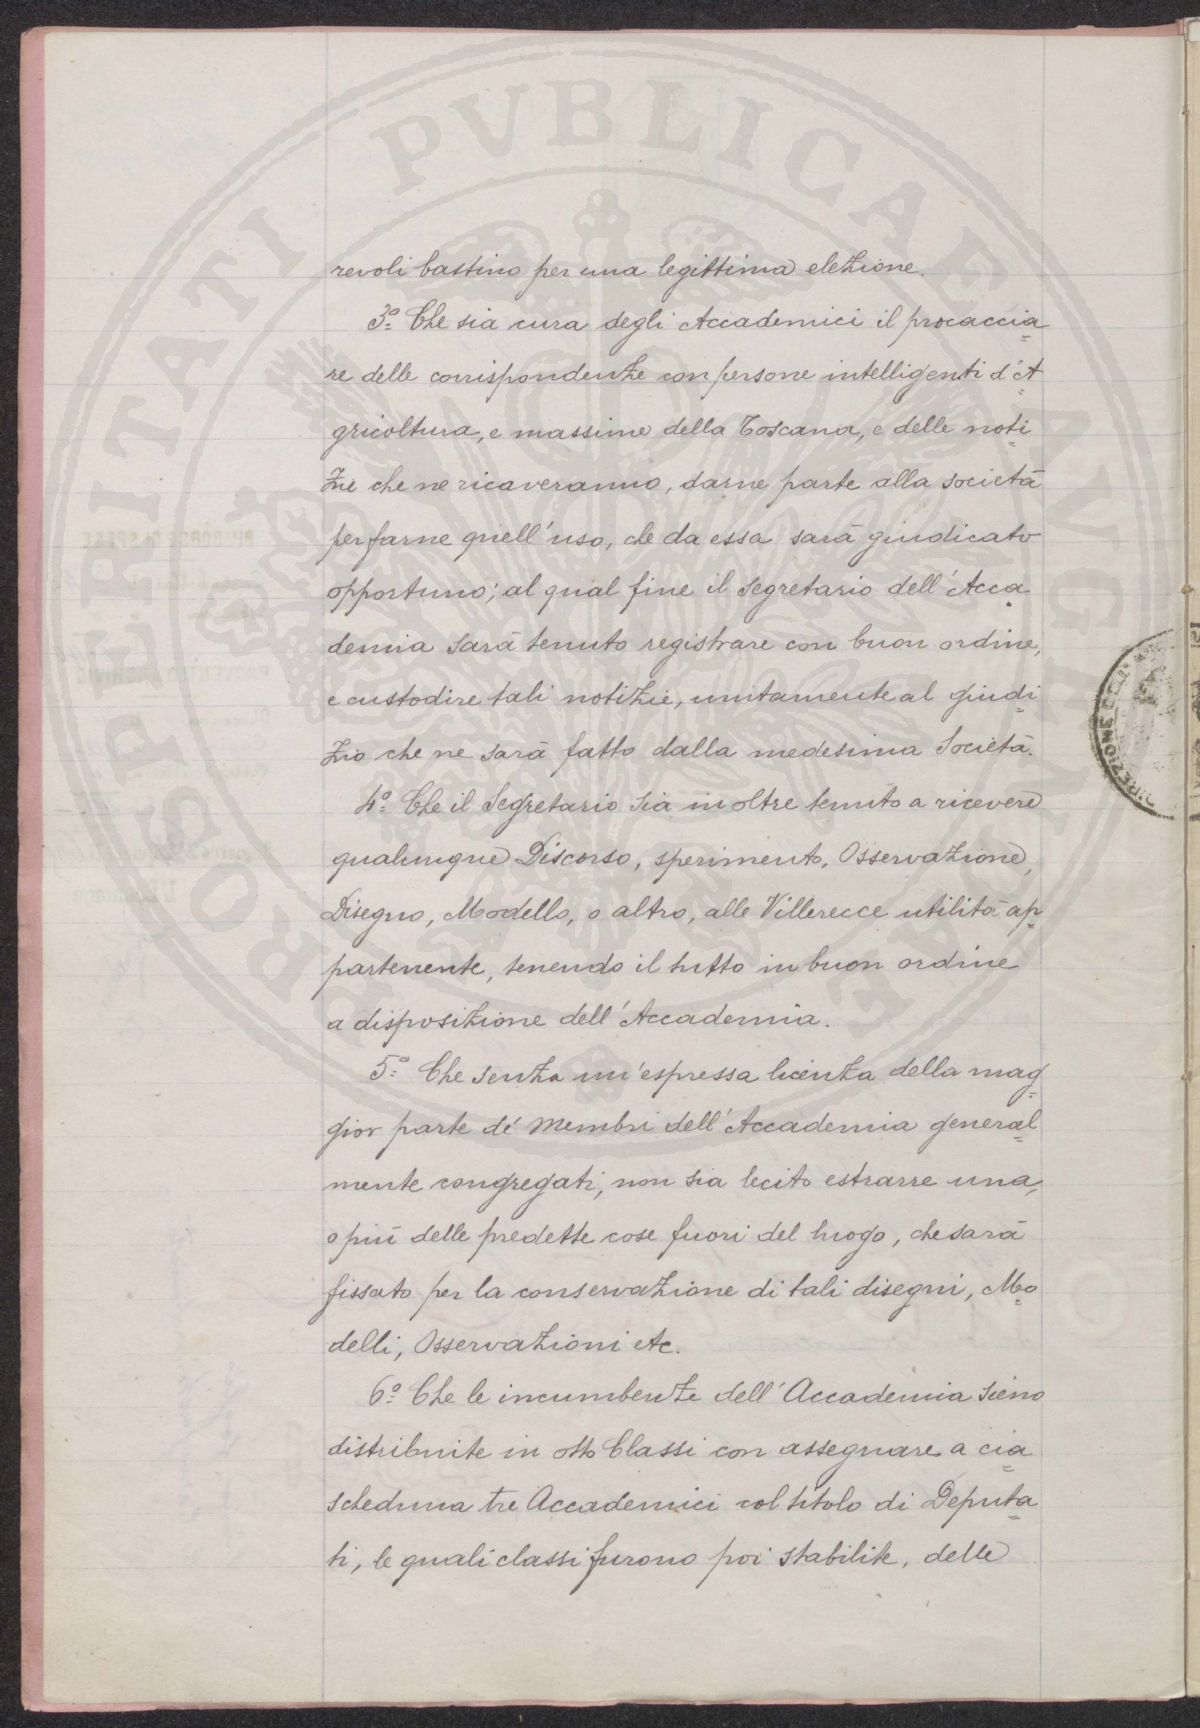 revoli bastino per una legittima elezione.
3º Che sia cura degli Accademici il procaccia=
re delle corrispondenze con persone intelligenti d'A=
gricoltura, e massime della Toscana, e delle noti=
zie che ne ricaveranno, darne parte alla società
per farne quell'uso, che da essa sarà giudicato
opportuno; al qual fine il segretario dell'Acca=
demia sarà tenuto registrare con buon ordine,
e custodire tali notizie, unitamente al giudi=
zio che ne sarà fatto dalla medesima Società.
4º Che il Segretario sia inoltre tenuto a ricevere
qualunque Discorso, sperimento, Osservazione,
Disegno, Modello, o altro, alle Villerecce utilità ap=
partenente, tenendo il tutto in buon ordine
a disposizione dell'Accademia.
5º Che senza un'espressa licenza della mag=
gior parte de' Membri dell'Accademia general=
mente congregati, non sia lecito estrarre una,
o più delle predette cose fuori del luogo, che sarà
fissato per la conservazione di tali disegni, Mo=
delli, Osservazioni etc.
6º Che le incumbenze dell'Accademia sieno
distribuite in otto Classi con assegnare a cia=
scheduna tre Accademici col titolo di Deputa=
ti, le quali classi furono poi stabilite, delle
PROSPERITATI PVBLICAE AVGENDAE